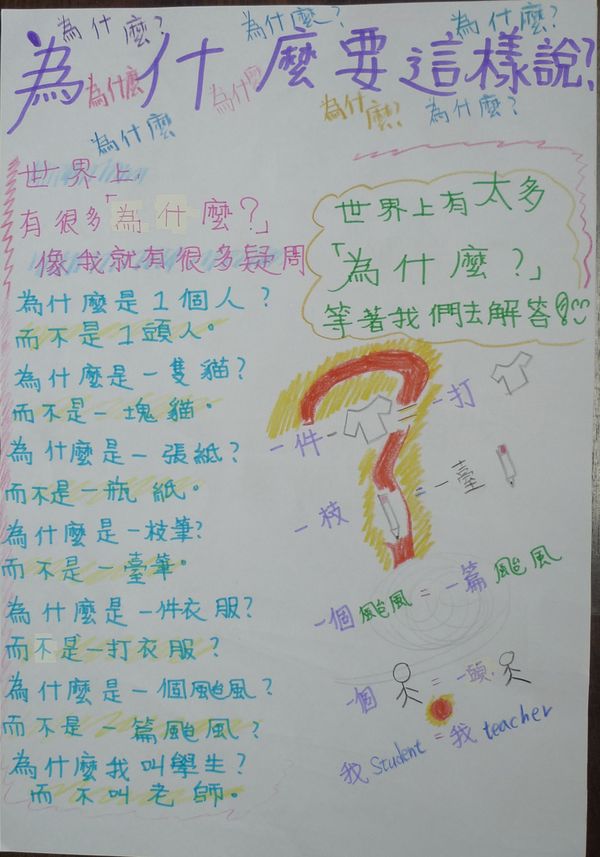 為什麼?
為什麼?
為什麼?
為什麼要這樣說?
為什麼
為什麼
為什麼?
為什麼?
為什麼
世界上,
有很多「為什麼?」
像我就有很多疑周
為什麼是1個人?
而不是1頭人。
為什麼是一隻貓?
而不是一塊貓。
為什麼是一張紙?
而不是一瓶紙。
為什麼是一枝筆?
而不是一臺筆。
為什麼是一件衣服?
而不是一打衣服?
為什麼是一個颱風?
而不是一篇颱風?
為什麼我叫學生?
而不叫老師。
世界上有太多
「為什麼?」
等著我們去解答!
一件=一打
一枝=一臺
一個颱風=一篇颱風
一個=一頭
我 Student = 我 teacher